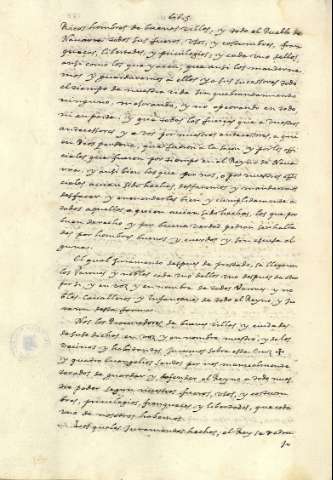 Ricos hombres de buenas villas, y todo el Pueblo de
Navarra todos sus fueros, usos, y costumbres, fran
quezas, libertades, y privilegios, y cada uno dellos
ansi como los que ayan, que ansi los mantendre
mos y guardaremos a ellos y a sus sucesores todo
el tiempo de nuestra vida sin quebrantamiento
ninguno, mejorando, y no apeorando en todo
ni en parte. Y que todas las fuerças que a vuestros
antecesores y a vos por nuestros antecesores, a quien
Dios perdone, que fueron a la saçon y por los offi
ciales que fueron por tiempo en el Reyno de Nava
rra, y ansi bien los que por nos, o por nuestros offi
ciales avran sido hechas, desfaremos y mandaremos
desfacer y enmendarlas bien y cumplidamente a
todos aquellos a quien avran sido hechas, los que por
buen derecho y por buena verdad podran ser halla
das por hombres buenos y cuerdos y sin escusa al
guna.
El qual Juramento despues de prestado, se llegaron
los y nobles cada uno dellos uno despues de otro
por si, y en voz y en nombre de todos y no
bles, Cavalleros y Infançones de todo el Reyno, y Ju
raron desta forma.
Nos los Procuradores de buenas villas y ciudades
de suso dichos en voz y en nombre nuestro, y de los
vecinos y habitantes Juramos sobre esta cruz +
y quatro Evangelios Santos por nos manualmente
tocados de guardar y defender el Reyno a todo nues
tro poder segun nuestros fueros, usos, y costum
bres, privilegios, franquezas y libertades, que cada
uno de nosotros habemos.
Los quales Juramentos hechos, el Rey se